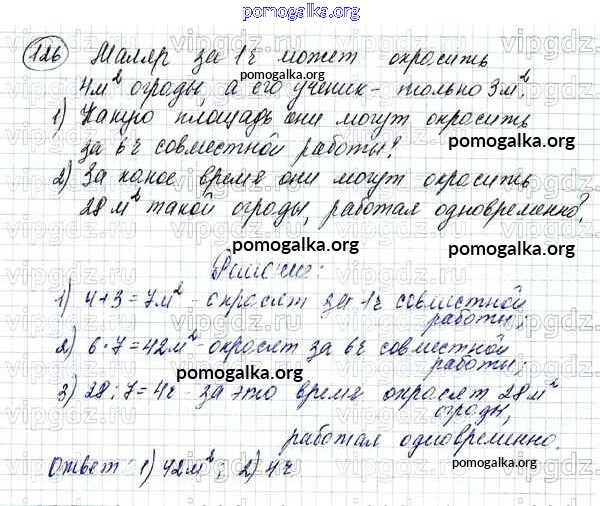 pomogalka.org
126 Маляр за 1ч может окрасить
4м² ограды, а его ученик - только 3м².
1) Какую площадь они могут окрасить
за 6ч совместной работы?
2) За какое время они могут окрасить
28м² такой ограды, работая одновременно?
Решение:
1) 4+3=7м² - окрасят за 1ч совместной
работы;
2) 6·7=42м² - окрасят за 6ч совместной
работы;
3) 28:7=4ч - за это время окрасят 28м²
ограды,
работая одновременно.
Ответ: 1) 42м²; 2) 4ч